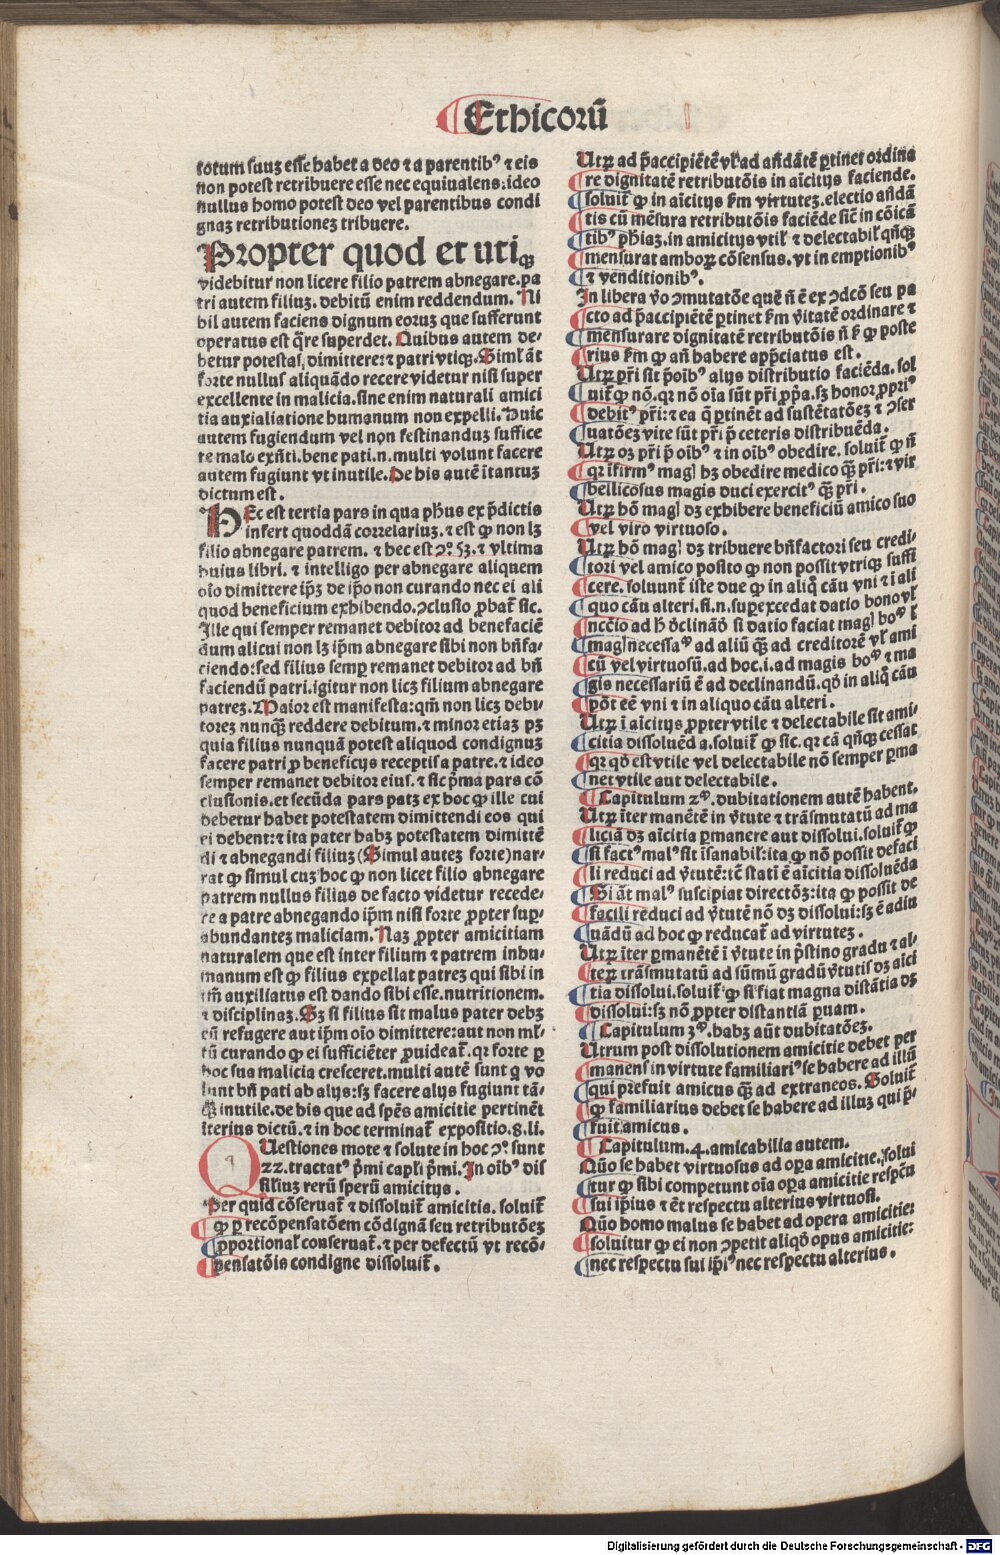 Ethicorū
totum suuʒ esse habet a deo ⁊ a parentibꝰ ⁊ eis
non potest retribuere esse nec equiualens: ideo
nullus homo potest deo vel parentibus condi
gnaʒ retributioneʒ tribuere.
Propter quod et utiqꝫ
videbitur non licere filio patrem abnegare. pa
tri autem filiuʒ. debitū enim reddendum. Ni
hil autem faciens dignum eoruʒ que sufferunt
operatus est q̄re superdet. Quibus autem de-
betur potestas, dimittere: ⁊ patri vtiqꝫ. Siml' āt
forte nullus aliquādo recere videtur nisi super
excellente in malicia. sine enim naturali amici
tia auxialiatione humanum non expelli. Huic
autem fugiendum vel non festinanduʒ suffice
te malo exñti. bene pati. n. multi volunt facere
autem fugiunt vt inutile. De his autē ītantuʒ
dictum est.
HEc est tertia pars in qua phūs ex p̄dictis
infert quoddā correlariuʒ. ⁊ est ꝙ non lʒ
filio abnegare patrem. ⁊ hec est ↄ° 53. ⁊ vltima
huius libri. ⁊ intelligo per abnegare aliquem
oīo dimittere ip̄ʒ de ip̄o non curando nec ei ali
quod beneficium exhibendo. ↄclusio ꝓbat̄ sic.
Ille qui semper remanet debitor ad benefaciē
dum alicui non lʒ ip̄m abnegare sibi non bn̄fa-
ciendo: sed filius semꝑ remanet debitor ad bn̄
faciendū patri. igitur non licʒ filium abnegare
patreʒ. Maior est manifesta: qm̄ non licʒ debi-
toreʒ nunqʒ reddere debitum. ⁊ minor etiaʒ pʒ
quia filius nunquā potest aliquod condignuʒ
facere patri ꝓ beneficijs receptis a patre. ⁊ ideo
semper remanet debitor eius. ⁊ sic p̄ma pars cō
clusionis. et secūda pars patʒ ex hoc ꝙ ille cui
debetur habet potestatem dimittendi eos qui
ei debent: ⁊ ita pater habʒ potestatem dimittē
di ⁊ abnegandi filiuʒ (Simul auteʒ forte) nar-
rat ꝙ simul cuʒ hoc ꝙ non licet filio abnegare
patrem nullus filius de facto videtur recede-
re a patre abnegando ip̄m nisi forte ꝓpter suꝑ
abundanteʒ maliciam. Naʒ ꝓpter amicitiam
naturalem que est inter filium ⁊ patrem inhu-
manum est ꝙ filius expellat patreʒ qui sibi in
tm̄ auxiliatus est dando sibi esse. nutritionem.
⁊ disciplinaʒ. Sʒ si filius sit malus pater debʒ
eū refugere aut ip̄m oīo dimittere: aut non ml'
tū curando ꝙ ei sufficiēter ꝓuideat̄. qʒ forte ꝑ
hoc sua malicia cresceret. multi autē sunt q̇ vo
lunt bn̄ pati ab alijs: sʒ facere alijs fugiunt tā-
qʒ inutile. de his que ad spēs amicitie pertinēt
iterius dictū. ⁊ in hoc terminat̄ expositio. 8. li.
QUestiones mote ⁊ solute in hoc ↄ° sunt
22. tractatꝰ p̄mi capl'i p̄mi. In oībꝰ dis
similiuʒ rerū sperū amicitijs.
Per quid cōseruat̄ ⁊ dissoluit̄ amicitia. soluit̄
ꝙ ꝑ recōpensatōem cōdignā seu retributōeʒ
ꝓportional' conseruat̄. ⁊ per defectū vt recō-
pensatōis condigne dissoluit̄.
Utrʒ ad p̄accipiētē vl' ad añdātē ꝑtinet ordina
re dignitatē retributōis in aīcitijs faciende.
soluit̄ ꝙ in aīcitijs s̄m virtuteʒ. electio añdā
tis cū mēsura retributōis faciēde sic̄ in cōicā
tibꝰ ph'iaʒ. in amicitijs vtil' ⁊ delectabil' qñqʒ
mensurat amboꝝ cōsensus. vt in emptionibꝰ
⁊ venditionibꝰ.
In libera v̄o ↄmutatōe quē n̄ ē ex ↄdcō seu pa
cto ad p̄accipiētē ꝑtinet s̄m v̄itatē ordinare ⁊
mensurare dignitatē retributōis n̄ s̄ ꝙ poste
rius s̄m ꝙ añ habere app̄ciatus est.
Utrʒ pr̄i sit p̄oībꝰ alijs distributio faciēda. sol
uit̄ ꝙ nō. qʒ nō oīa sūt pr̄i ꝓp̄a. sʒ honoʒ ꝓpriꝰ
debitꝰ pr̄i: ⁊ ea q̄ ꝑtinēt ad sustētatōeʒ ⁊ ↄser
uatōeʒ vite sūt pr̄i p̄ ceteris distribuēda.
Utrʒ oʒ pr̄i p̄ oībꝰ ⁊ in oībꝰ obedire. soluit̄ ꝙ n̄
qʒ īfirmꝰ magl' hʒ obedire medico qʒ pr̄i: ⁊ vir
bellicosus magis duci exercitꝰ qʒ pr̄i.
Utrʒ hō magl' dʒ exhibere beneficiū amico suo
vel viro virtuoso.
Utrʒ hō magl' dʒ tribuere bn̄factori seu credi-
tori vel amico posito ꝙ non possit vtriqʒ suffi
cere. soluunt̄ iste due ꝙ in aliq̄ cāu vni ⁊ ī ali
quo cāu alteri. si. n. suꝑexcedat datio bono vl'
ncc̄io ad h̄ dclinādū si datio faciat magl' boꝰ l'
magl' necessaꝰ ad aliū qʒ ad creditorē vl' ami
cū vel virtuosū. ad hoc. i. ad magis boꝰ ⁊ ma
gis necessariū ē ad declinandū. qd̄ in aliq̄ cāu
pōt eē vni ⁊ in aliquo cāu alteri.
Utrʒ ī aīcitijs ꝓpter vtile ⁊ delectabile sit ami-
citia dissoluēda. soluit̄ ꝙ sic. qʒ cā qñqʒ cessat
qʒ qd̄ est vtile vel delectabile nō semper ꝑma
net vtile aut delectabile.
Capitulum 2ᵐ. dubitationem autē habent.
Utrʒ īter manētē in v̄tute ⁊ trāsmutatū ad ma
liciā dʒ aīcitia ꝑmanere aut dissolui. soluit̄ ꝙ
si factꝰ malꝰ sit īsanabil': ita ꝙ nō possit de faci
li reduci ad v̄tutē: tc̄ stati ē aīcitia dissoluēda
Si āt malꝰ suscipiat directōʒ: ita ꝙ possit de
facili reduci ad v̄tutē nō dʒ dissolui: sʒ ē adiu
uādū ad hoc ꝙ reducat̄ ad virtuteʒ.
Utrʒ īter ꝑmanētē ī v̄tute in p̄stino gradu ⁊ al-
teʒ trāsmutatū ad sūmū gradū v̄tutis dʒ aīci
tia dissolui. soluit̄ ꝙ si fiat magna distātia dʒ
dissolui: sʒ nō ꝓpter distantiā ꝑuam.
Capitulum 3ᵐ. habʒ aūt dubitatōeʒ.
Utrum post dissolutionem amicitie debet per
manens in virtute familiariꝰ se habere ad illū
qui prefuit amicus qʒ ad extraneos. Soluit̄
ꝙ familiarius debet se habere ad illuʒ qui p̄-
fuit amicus.
Capitulum. 4. amicabilia autem.
Quō se habet virtuosus ad oꝑa amicitie. solui
tur ꝙ sibi competunt oīa oꝑa amicitie respectu
sui ip̄ius ⁊ ēt respectu alterius virtuosi.
Quō homo malus se habet ad opera amicitie:
soluitur ꝙ ei non ↄpetit aliqd̄ opus amicitie:
nec respectu sui ip̄iꝰ nec respectu alterius.
Digitalisierung gefördert durch die Deutsche Forschungsgemeinschaft - DFG